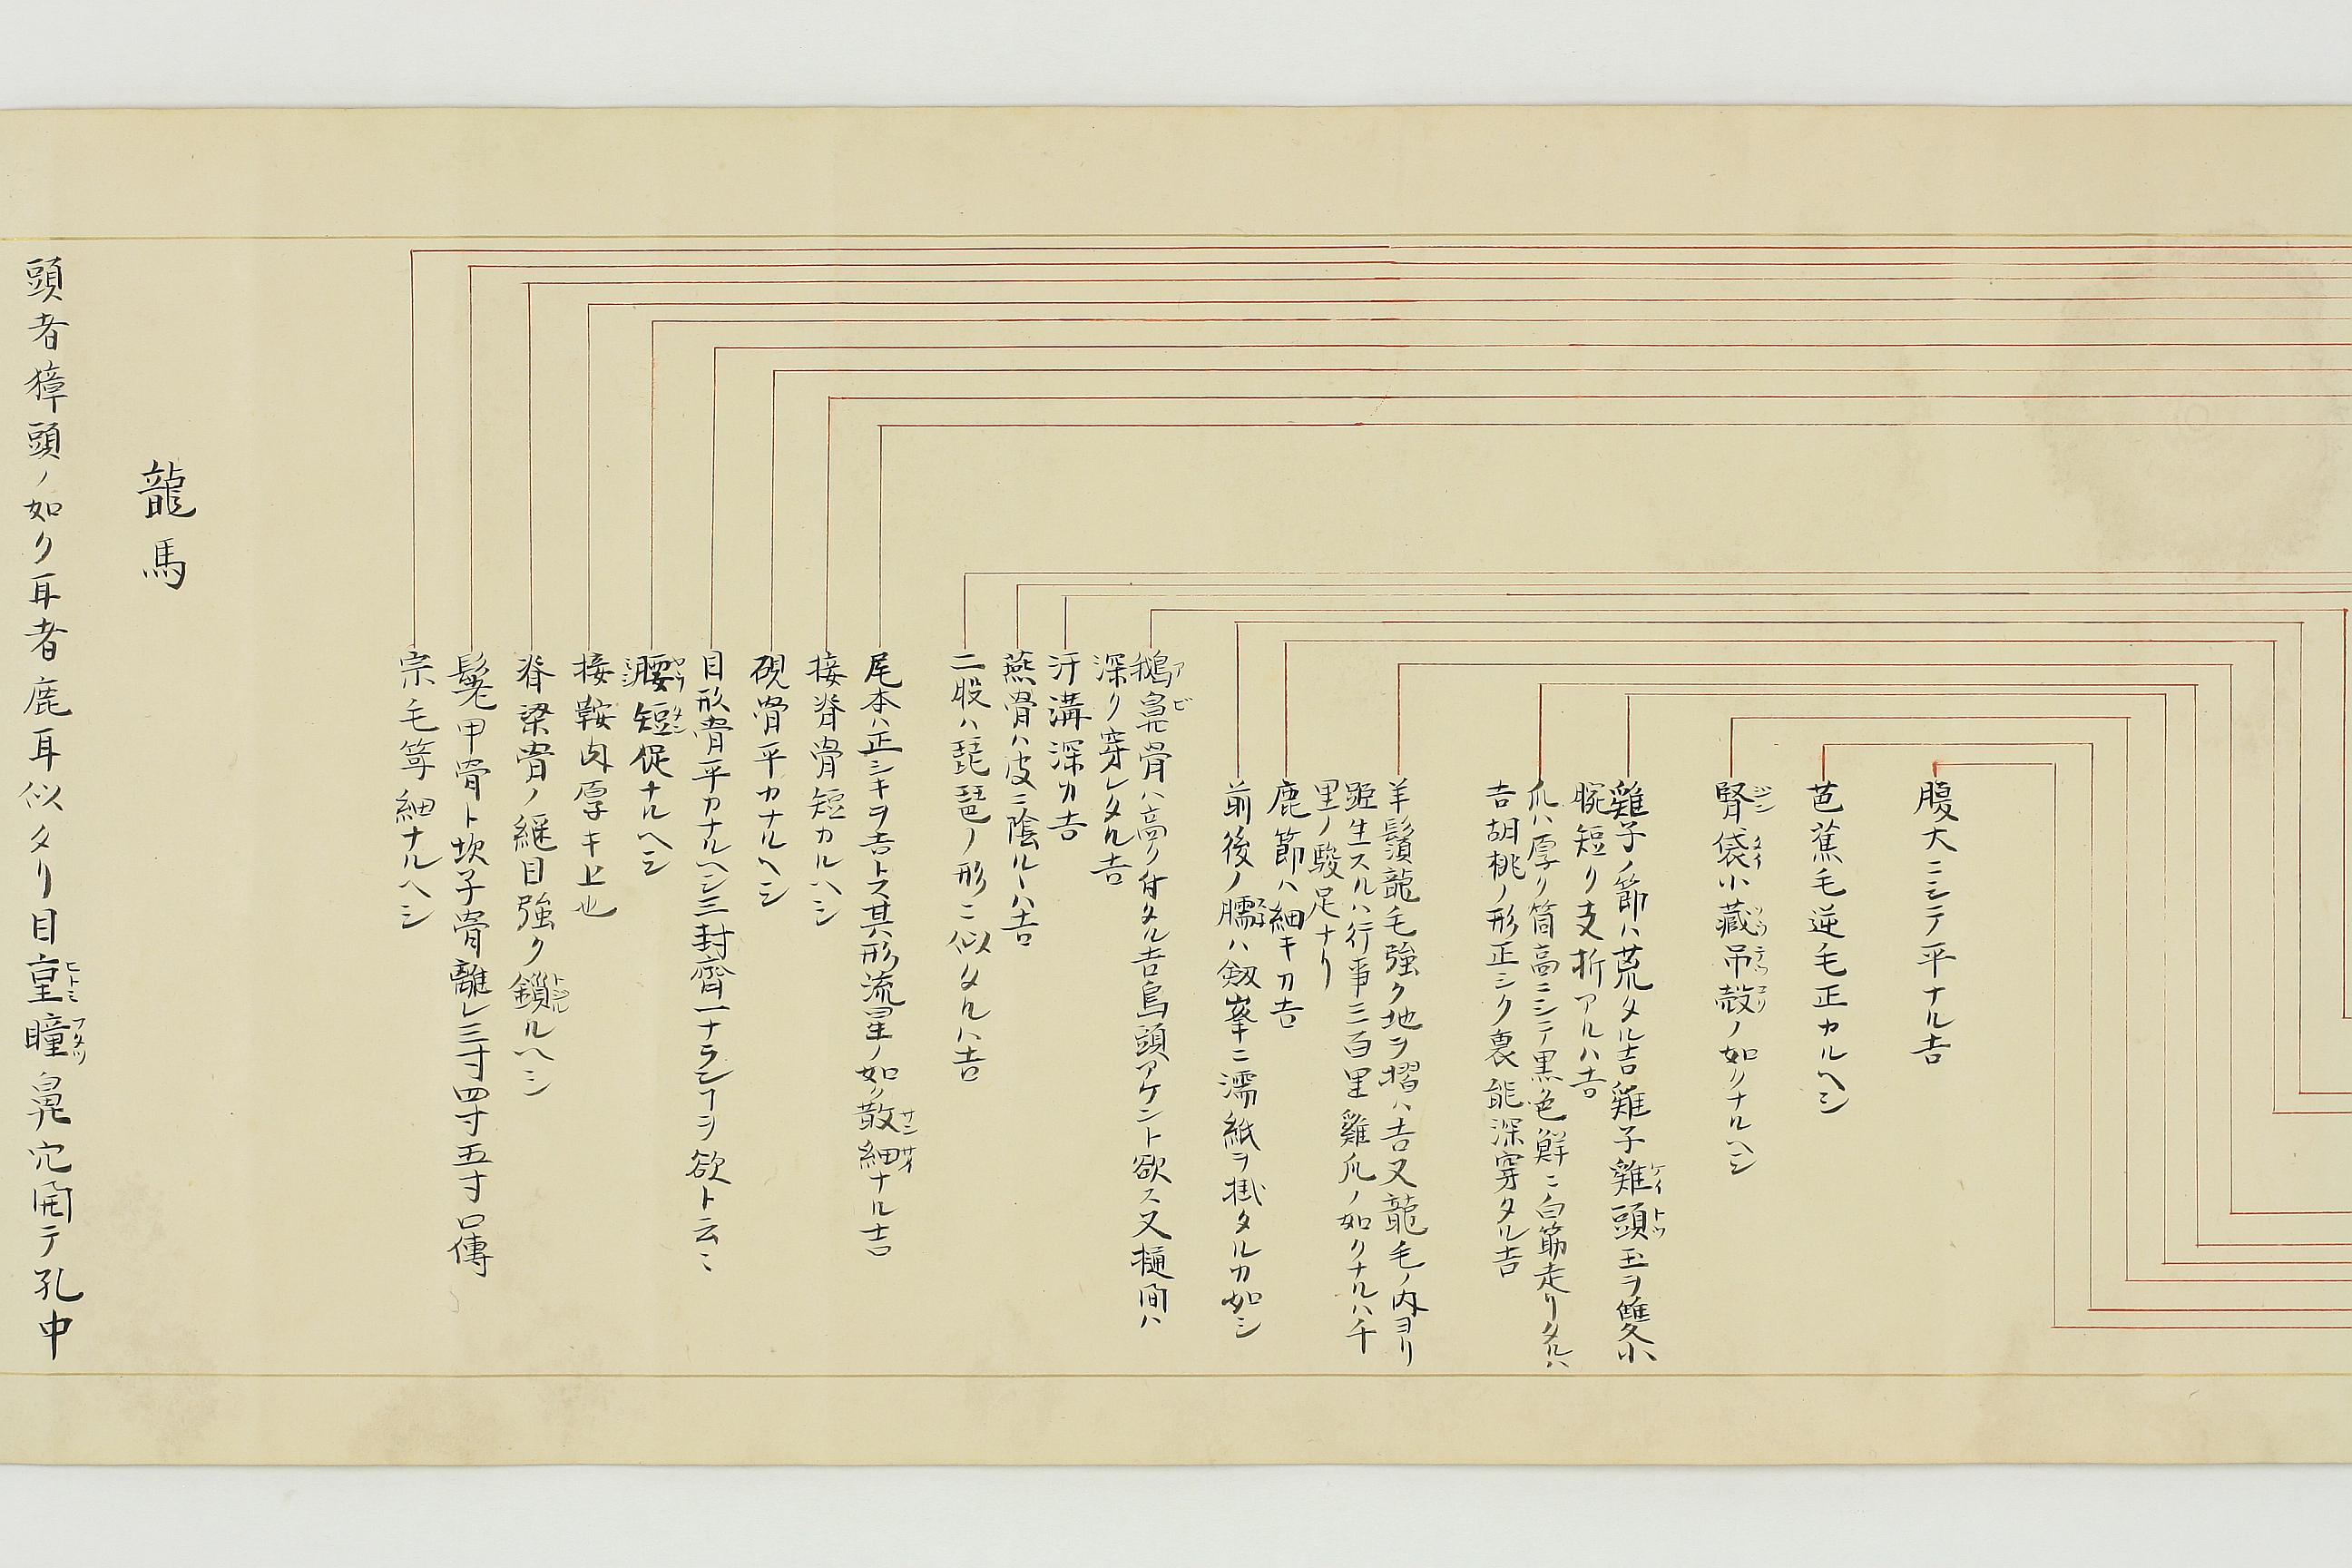 腹大ニシテ平ナル吉
芭蕉毛逆毛正カルヘシ
腎袋小藏吊殻ノ如クナルヘシ
雞子ノ節ハ荒タル吉雞子雞頭玉ヲ雙小
腕短ク支折アルハ吉
爪ハ厚ク筒高ニシテ黒色鮮ニ白筋走リタルハ
吉胡桃ノ形正シク裏能深穿タル吉
羊鬚龍毛強ク地ヲ摺ハ吉又龍毛ノ内ヨリ
距生スルハ行事三百里雞爪ノ如クナルハ千
里ノ駿足ナリ
鹿節ハ細キカ吉
前後ノ臑ハ劔峯ニ濡紙ヲ掛タルカ如シ
鵝鼻骨ハ高ク付タル吉烏頭アケント欲ス又樋間ハ
深ク穿レタル吉
汗溝深カ吉
燕骨ハ皮ニ陰ルハ吉
二股ハ琵琶ノ形ニ似タルハ吉
尾本ハ正シキヲ吉トス其形流星ノ如ク散細ナル吉
接脊骨短カルヘシ
硯骨平カナルヘシ
目形骨平カナルヘシ三封齊一ナラン丁ヲ欲ト云々
腰短促ナルヘシ
接鞍肉厚キ上也
脊梁骨ノ継目強ク鎖ルヘシ
鬐甲骨ト坎子骨離レ三寸四寸五寸口傳
宗毛等細ナルヘシ
龍馬
頭者獐頭ノ如ク耳者鹿耳似タリ目皇瞳鼻穴開テ孔中